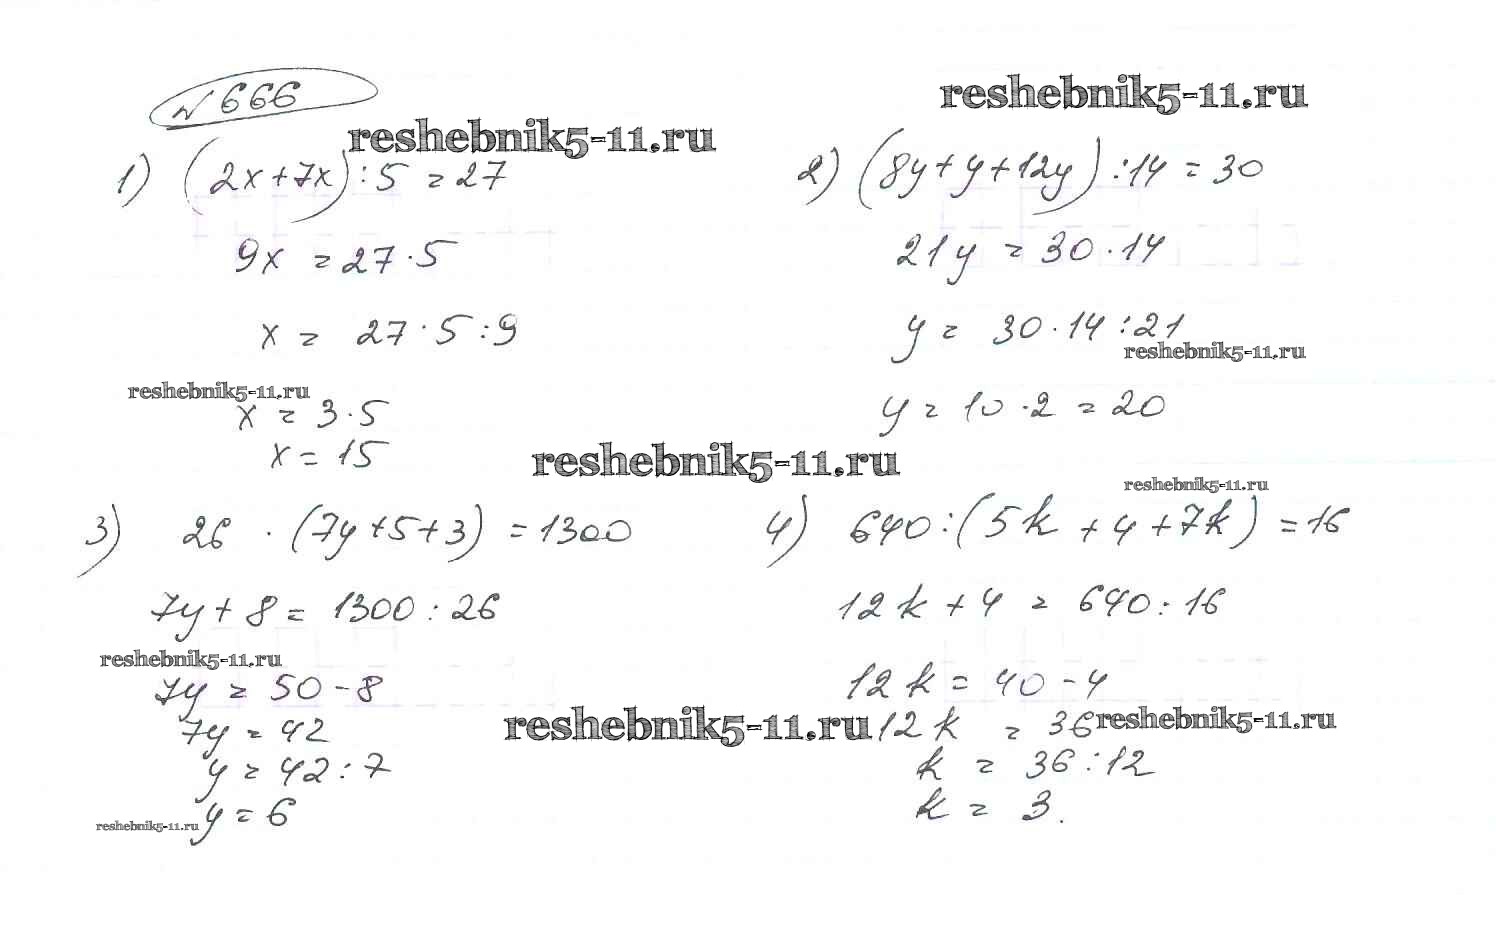 № 666
reshebnik5-11.ru
reshebnik5-11.ru
1) (2x+7x):5 = 27
9x = 27·5
x = 27·5:9
reshebnik5-11.ru
x = 3·5
x = 15
2) (8y+y+12y):14 = 30
21y = 30·14
y = 30·14:21
reshebnik5-11.ru
y = 10·2 = 20
reshebnik5-11.ru
reshebnik5-11.ru
3) 26·(7y+5+3) = 1300
7y+8 = 1300:26
reshebnik5-11.ru
7y = 50-8
7y = 42
y = 42:7
y = 6
reshebnik5-11.ru
4) 640:(5k+4+7k) = 16
12k+4 = 640:16
12k = 40-4
reshebnik5-11.ru
12k = 36
reshebnik5-11.ru
k = 36:12
k = 3.